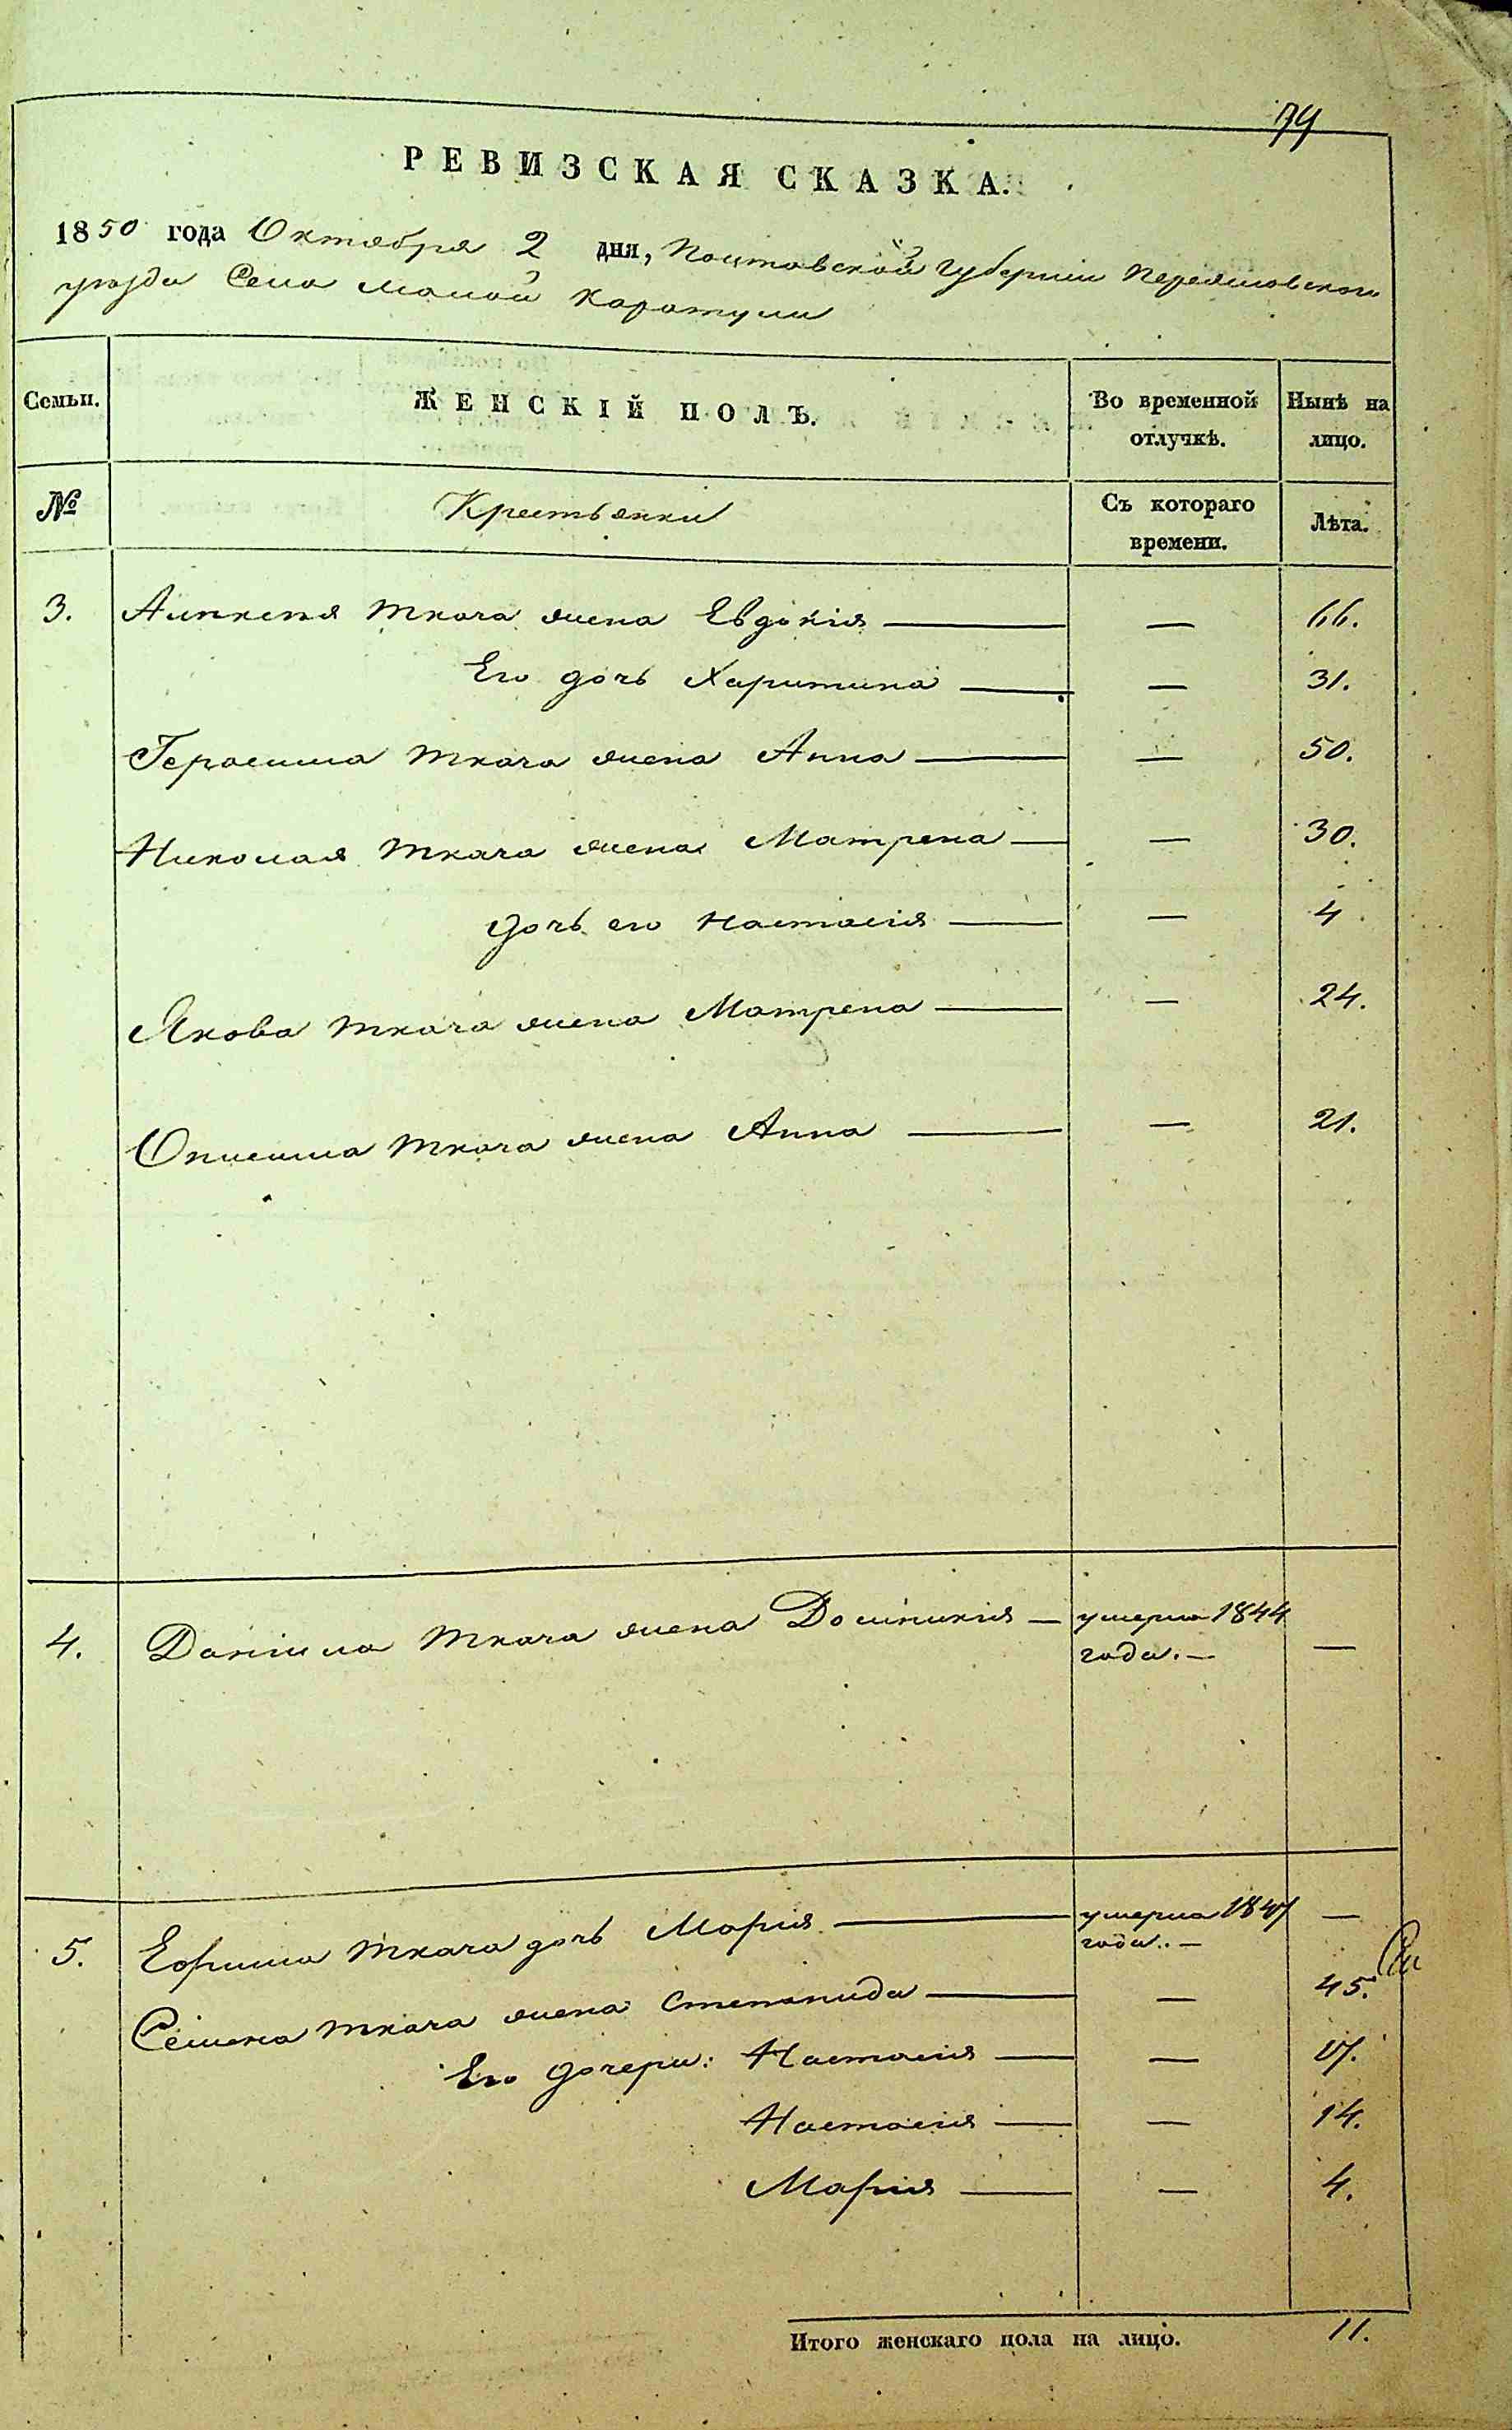 79
РЕВИЗСКАЯ СКАЗКА.
1850 года Октября 2 дня, Полтавской губерніи Переяславского
уѣзда Села Малой Каратули
Семьи. ЖЕНСКІЙ ПОЛЪ. Во временной отлучкѣ. Нынѣ на лицо.
№ Крестьянки Съ котораго времени. Лѣта.
3. Ткача жена Евдокія — — 66.
Его дочь Харитина — — 31.
Герасима Ткача жена Анна — — 50.
Николая Ткача жена Матрена — — 30.
дочь его Настасія — — 4.
Якова Ткача жена Матрена — — 24.
Онисима Ткача жена Анна — — 21.
4. Даніила Ткача жена Домникія — умерла 1844
года. — —
5. Ефима Ткача дочь Марія — умерла 1847 —
года. —
Семена Ткача жена Степанида — — 45.
Его дочери: Настасія — — 17.
Настасія — — 14.
Марія — — 4.
Итого женскаго пола на лицо. 11.